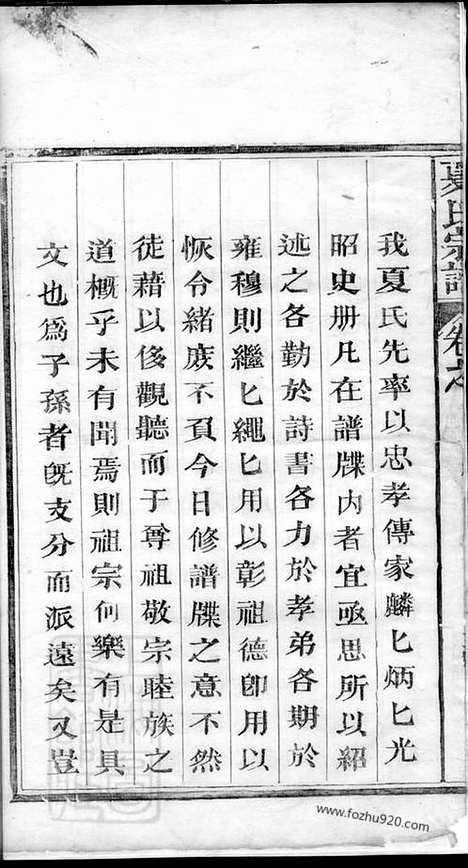 夏氏宗譜
卷之
我夏氏先率以忠孝傳家麟匕炳匕光
昭史册凡在譜牒内者宜亟思所以紹
述之各勤於詩書各力於孝弟各期於
雍穆則繼匕繩匕用以彰祖德卽用以
恢令緒庶不負今日修譜牒之意不然
徒藉以侈觀聽而于尊祖敬宗睦族之
道槪乎未有聞焉則祖宗何樂有是具
文也爲子孫者旣支分而派遠矣又豈
www.fozhu920.com